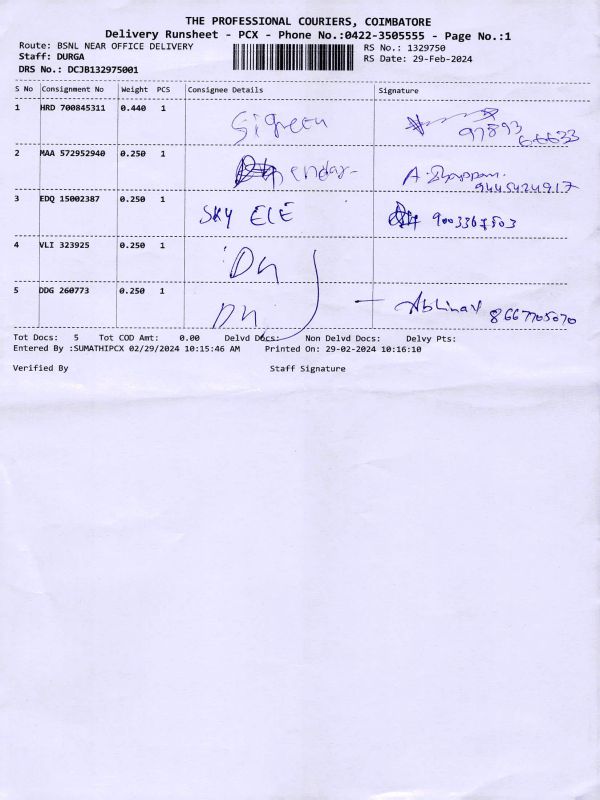 THE PROFESSIONAL COURIERS, COIMBATORE
Delivery Runsheet - PCX - Phone No.:0422-3505555 - Page No.:1
Route: BSNL NEAR OFFICE DELIVERY
RS No.: 1329750
Staff: DURGA
RS Date: 29-Feb-2024
DRS No.: DCJB132975001
S No Consignment No Weight PCS Consignee Details Signature
1 HRD 700845311 0.440 1
97893
66633
2 MAA 572952940 0.250 1
9445424917
3 EDQ 15002387 0.250 1 SKY ELE 9003367803
4 VLI 323925 0.250 1
5 DDG 260773 0.250 1 Abhinav 8667705070
Tot Docs: 5 Tot COD Amt: 0.00 Delvd Docs: Non Delvd Docs: Delvy Pts:
Entered By :SUMATHIPCX 02/29/2024 10:15:46 AM Printed On: 29-02-2024 10:16:10
Verified By Staff Signature